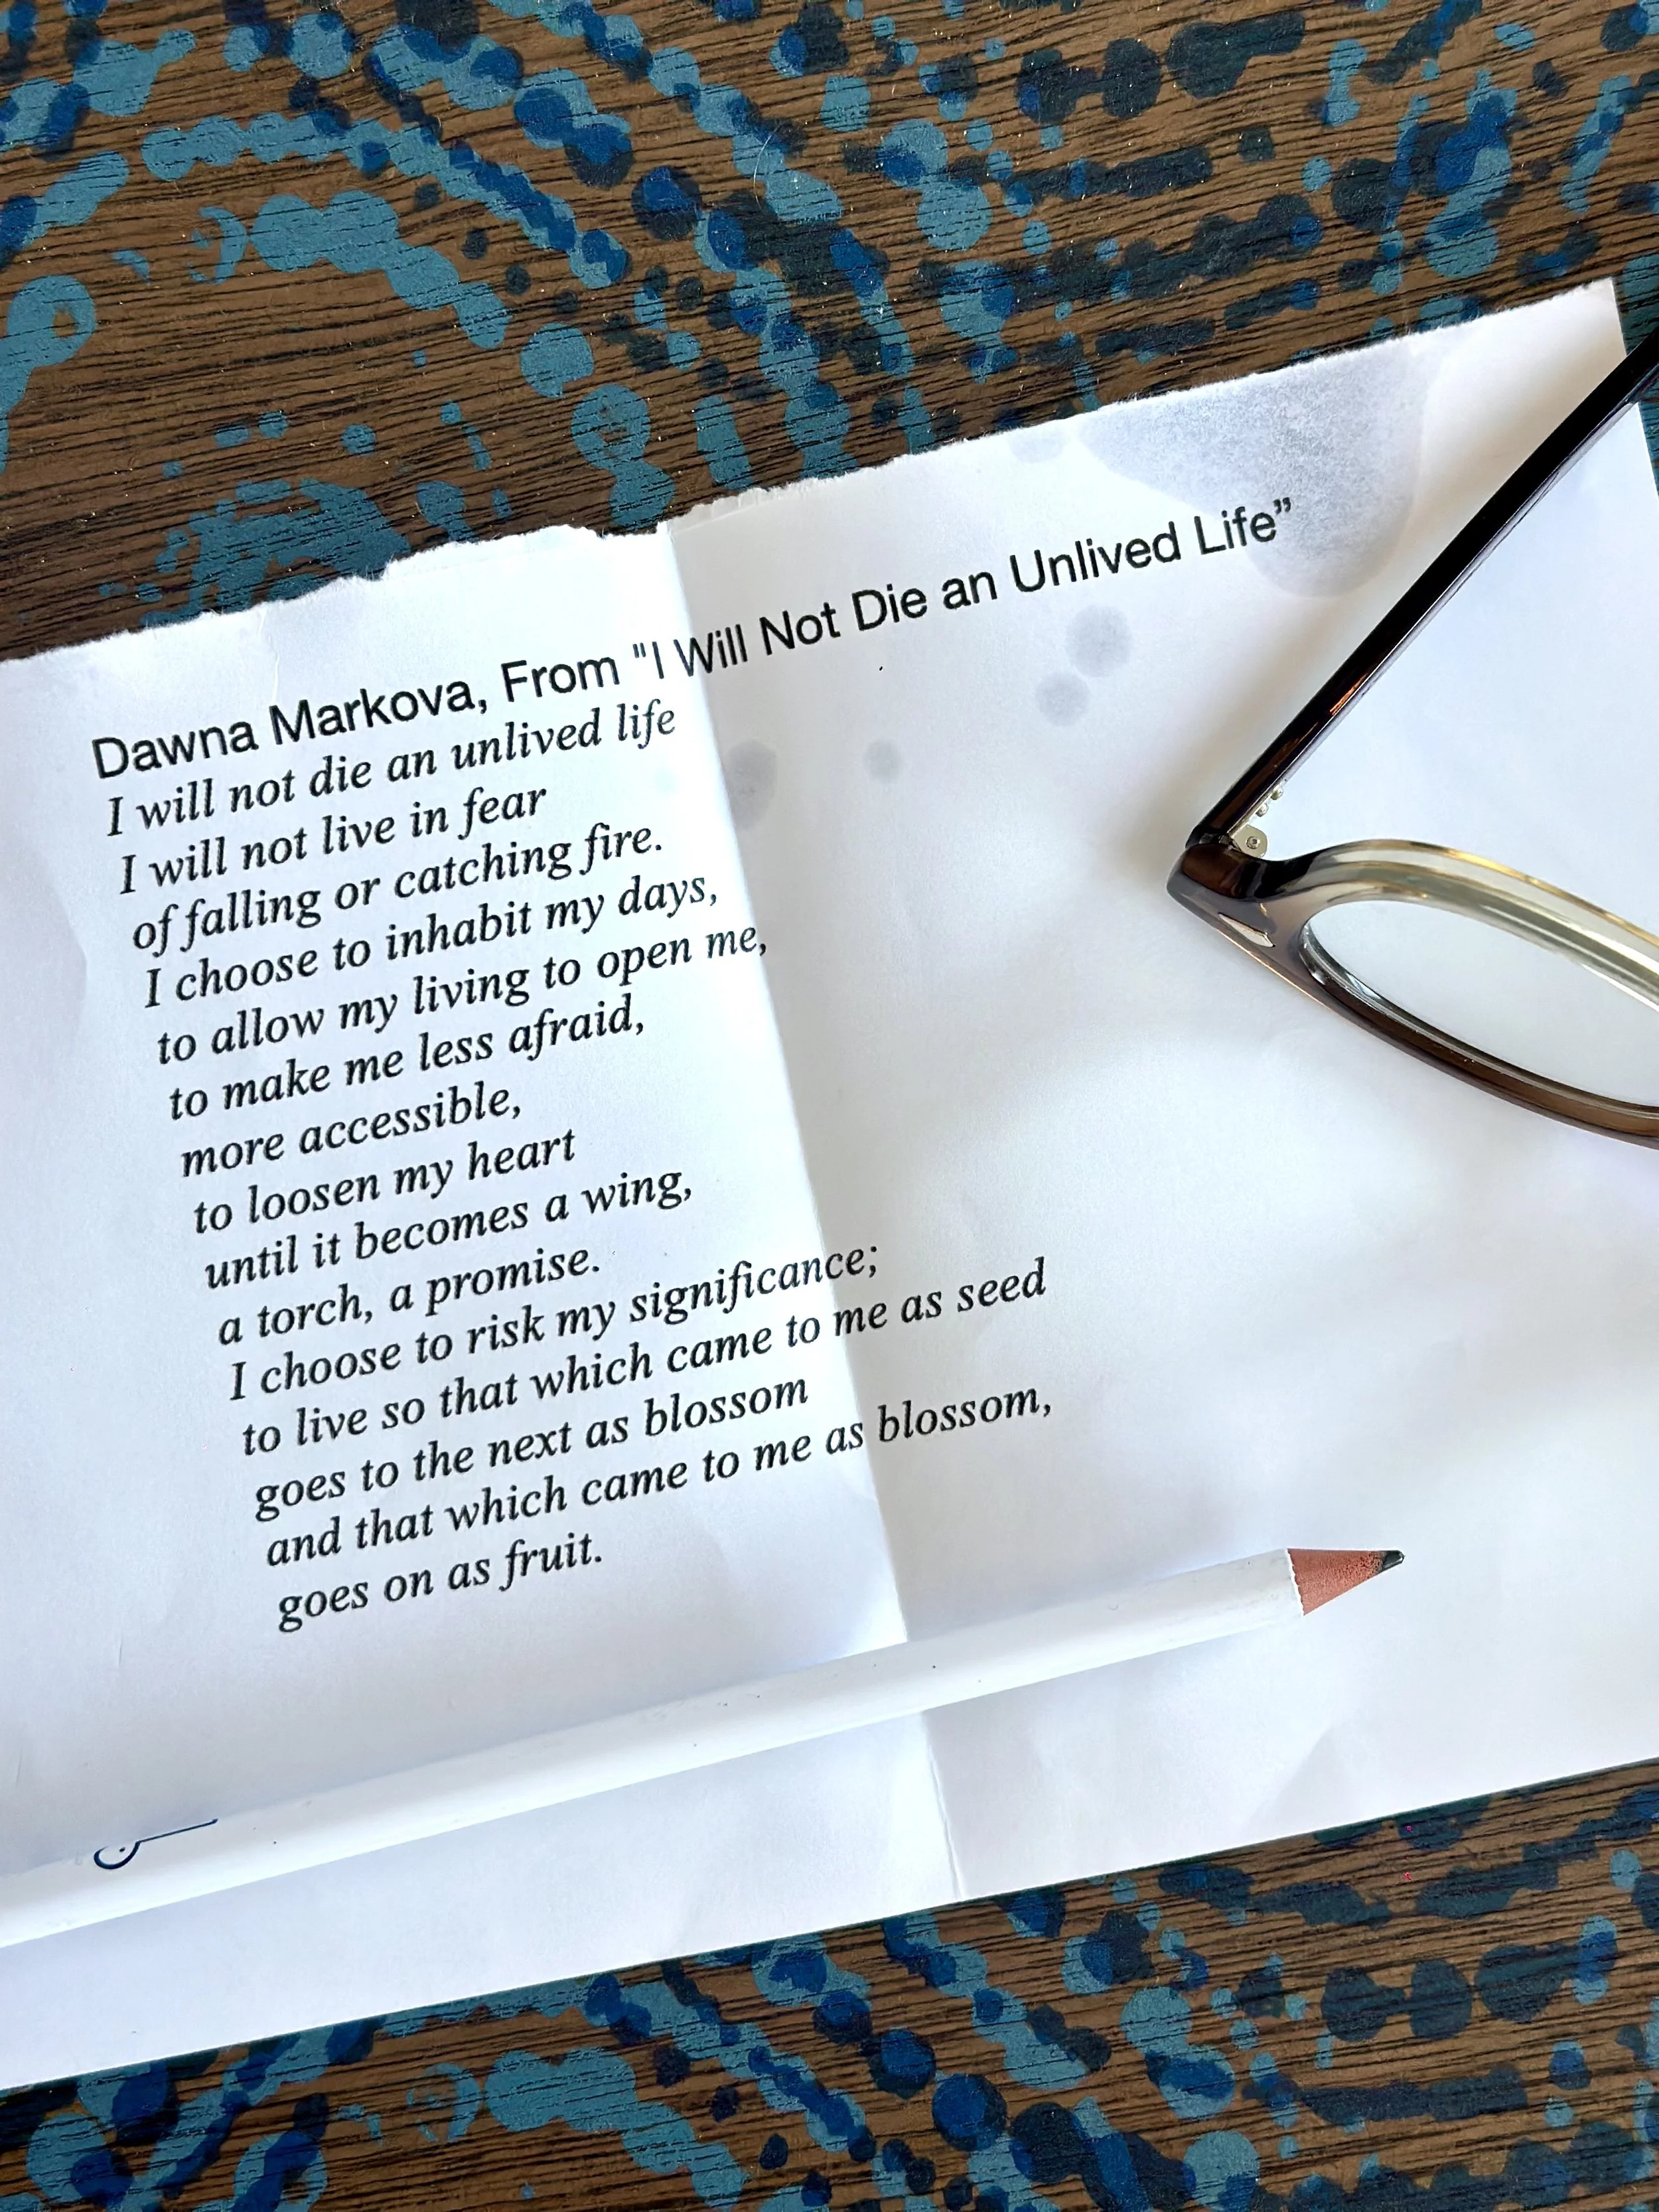 Dawna Markova, From "I Will Not Die an Unlived Life”
I will not die an unlived life
I will not live in fear
of falling or catching fire.
I choose to inhabit my days,
to allow my living to open me,
to make me less afraid,
more accessible,
to loosen my heart
until it becomes a wing,
a torch, a promise.
I choose to risk my significance;
to live so that which came to me as seed
goes to the next as blossom
and that which came to me as blossom,
goes on as fruit.